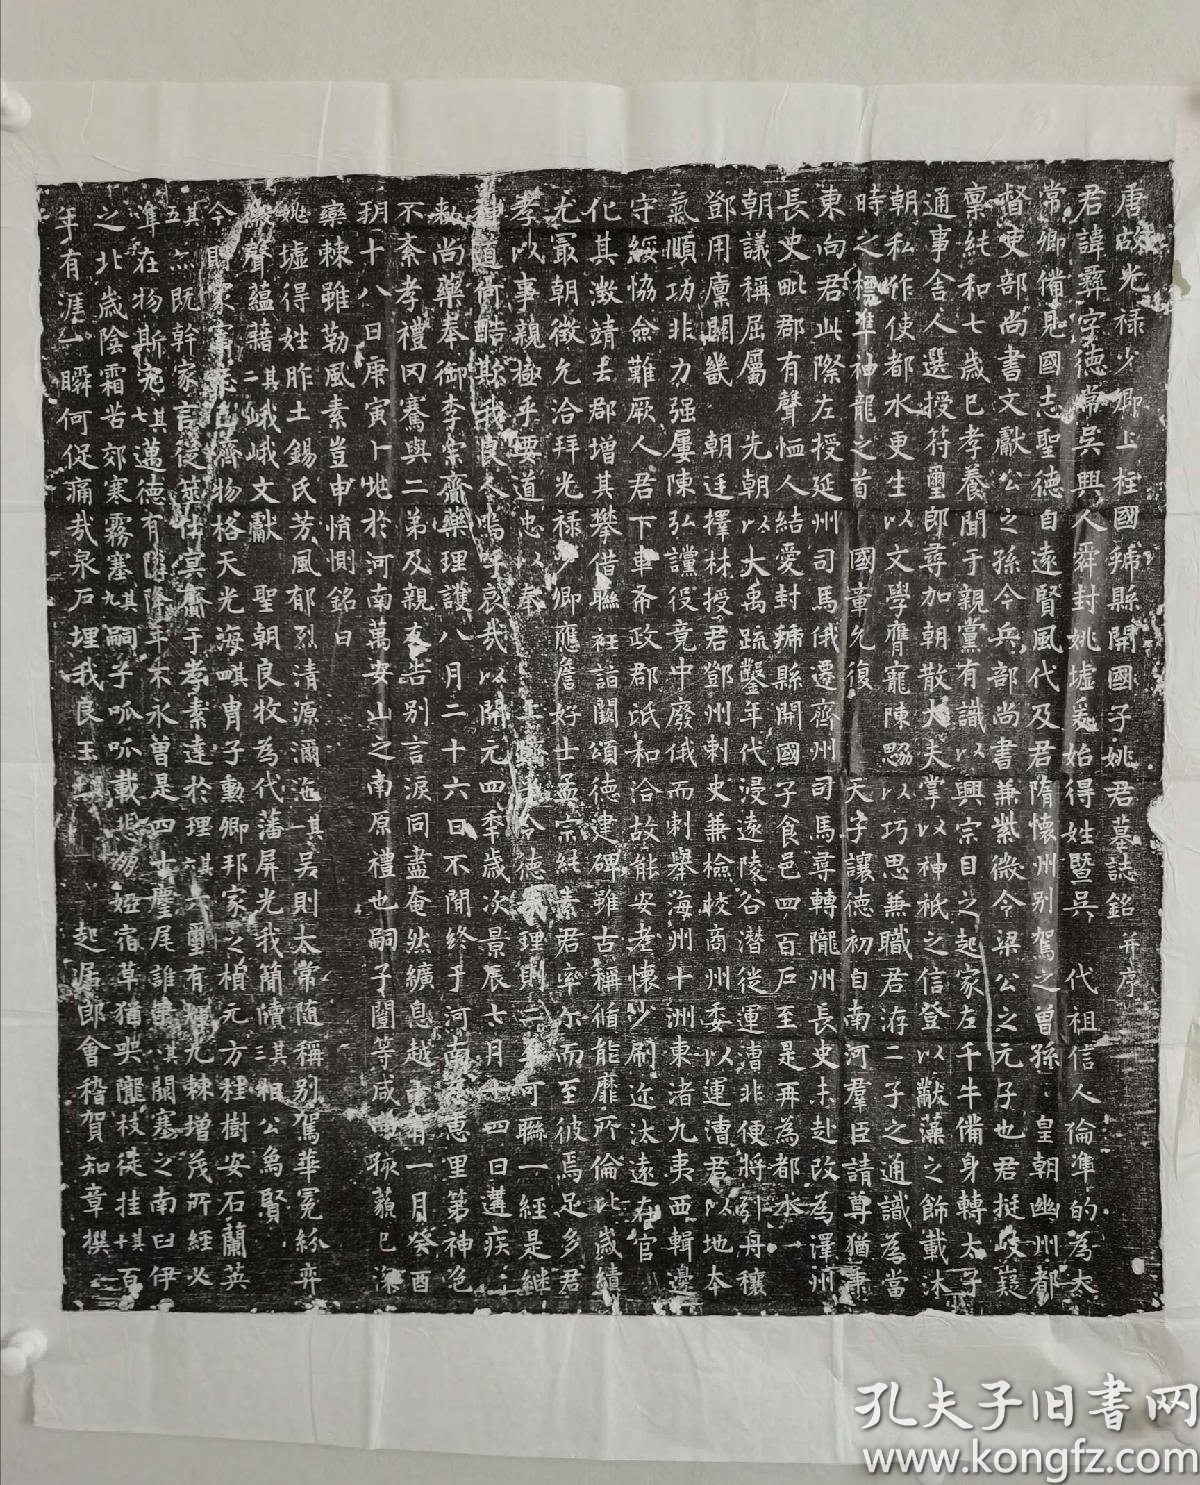 唐故光祿少卿上柱國虢縣開國子姚君墓誌銘并序
君諱彝字德常吳興人舜封姚墟爰始得姓暨吳 代祖信人倫準的為太
常卿備見國志聖德自遠賢風代及君隋懷州別駕之曾孫 皇朝幽州都
督吏部尚書文獻公之孫今兵部尚書兼紫微令梁公之元子也君挺岐嶷
稟純和七歲已孝養聞于親黨有識以興宗目之起家左千牛備身轉太子
通事舍人選授符璽郎尋加朝散大夫掌以神祇之信登以黻藻之飾載沐
朝私作使都水更生以文學膺寵陳勰以巧思兼職君游二子之通識為當
時之標準神龍之首 國章允復 天子讓德初自南河羣臣請尊猶秉
東向君此際左授延州司馬俄遷齊州司馬尋轉隴州長史未赴改為澤州
長史毗郡有聲恤人結愛封虢縣開國子食邑四百戶至是再為都水
朝議稱屈屬 先朝以大禹疏鑿年代浸遠陵谷潛從運漕非便將引舟穰
鄧用廪關畿 朝廷擇林授君鄧州刺史兼檢校商州委以運漕君以地本
氣順功非力强屢陳弘讜役竟中廢俄而刺舉海州十洲東渚九夷西輯邊
守綏恊僉難厥人君下車布政郡泜和洽故能安老懷少刷迩汰遠在官
化其澂靖去郡增其攀借聯衽詣闕頌德建碑雖古稱循能靡所倫比歲績
尤寂朝徵允洽拜光祿少卿應詹好士孟宗純素君率尔而至彼焉足多君
孝以事親極乎要道忠以奉上 令德 理則 可聯一經是継
神道何酷欺我良人嗚呼哀哉以開元四季歲次景辰七月十四日遘疾
勅尚藥奉御李宗齋藥理護八月二十六日不閒終于河南 惠里第神色
不紊孝禮罔騫與二弟及親友告別言淚同盡奄然纊息越 有一月癸酉
玥十八日庚寅卜地於河南萬安山之南原禮也嗣子闓等咸 孩藐已深
欒棘雖勒風素豈申悄惻銘曰
姚墟得姓胙土錫氏芳風郁烈清源濔迤其一吳則太常随稱別駕華冕紛弈
聲蘊藉其二峨峨文獻 聖朝良牧為代藩屏光我簡牘其三相公為賢
今 家 濟物格天光海暎胄子勳卿邦家之楨元方桂樹安石蘭英
其五 既幹家言從莁仕冥齋于孝素達於理其六璽有輝九棘增茂所經必
準在物斯宛其七邁德有降降年不永曾是四十麈尾誰 其 關塞之南臼伊
之北歲陰霜苦郊寒霧塞其九嗣子呱呱載悲 婭宿草猶 隴枝徒挂其十百
年有涯一瞬何促痛哉泉戶埋我良玉 起居郎會稽賀知章撰
孔夫子旧书网
www.kongfz.com